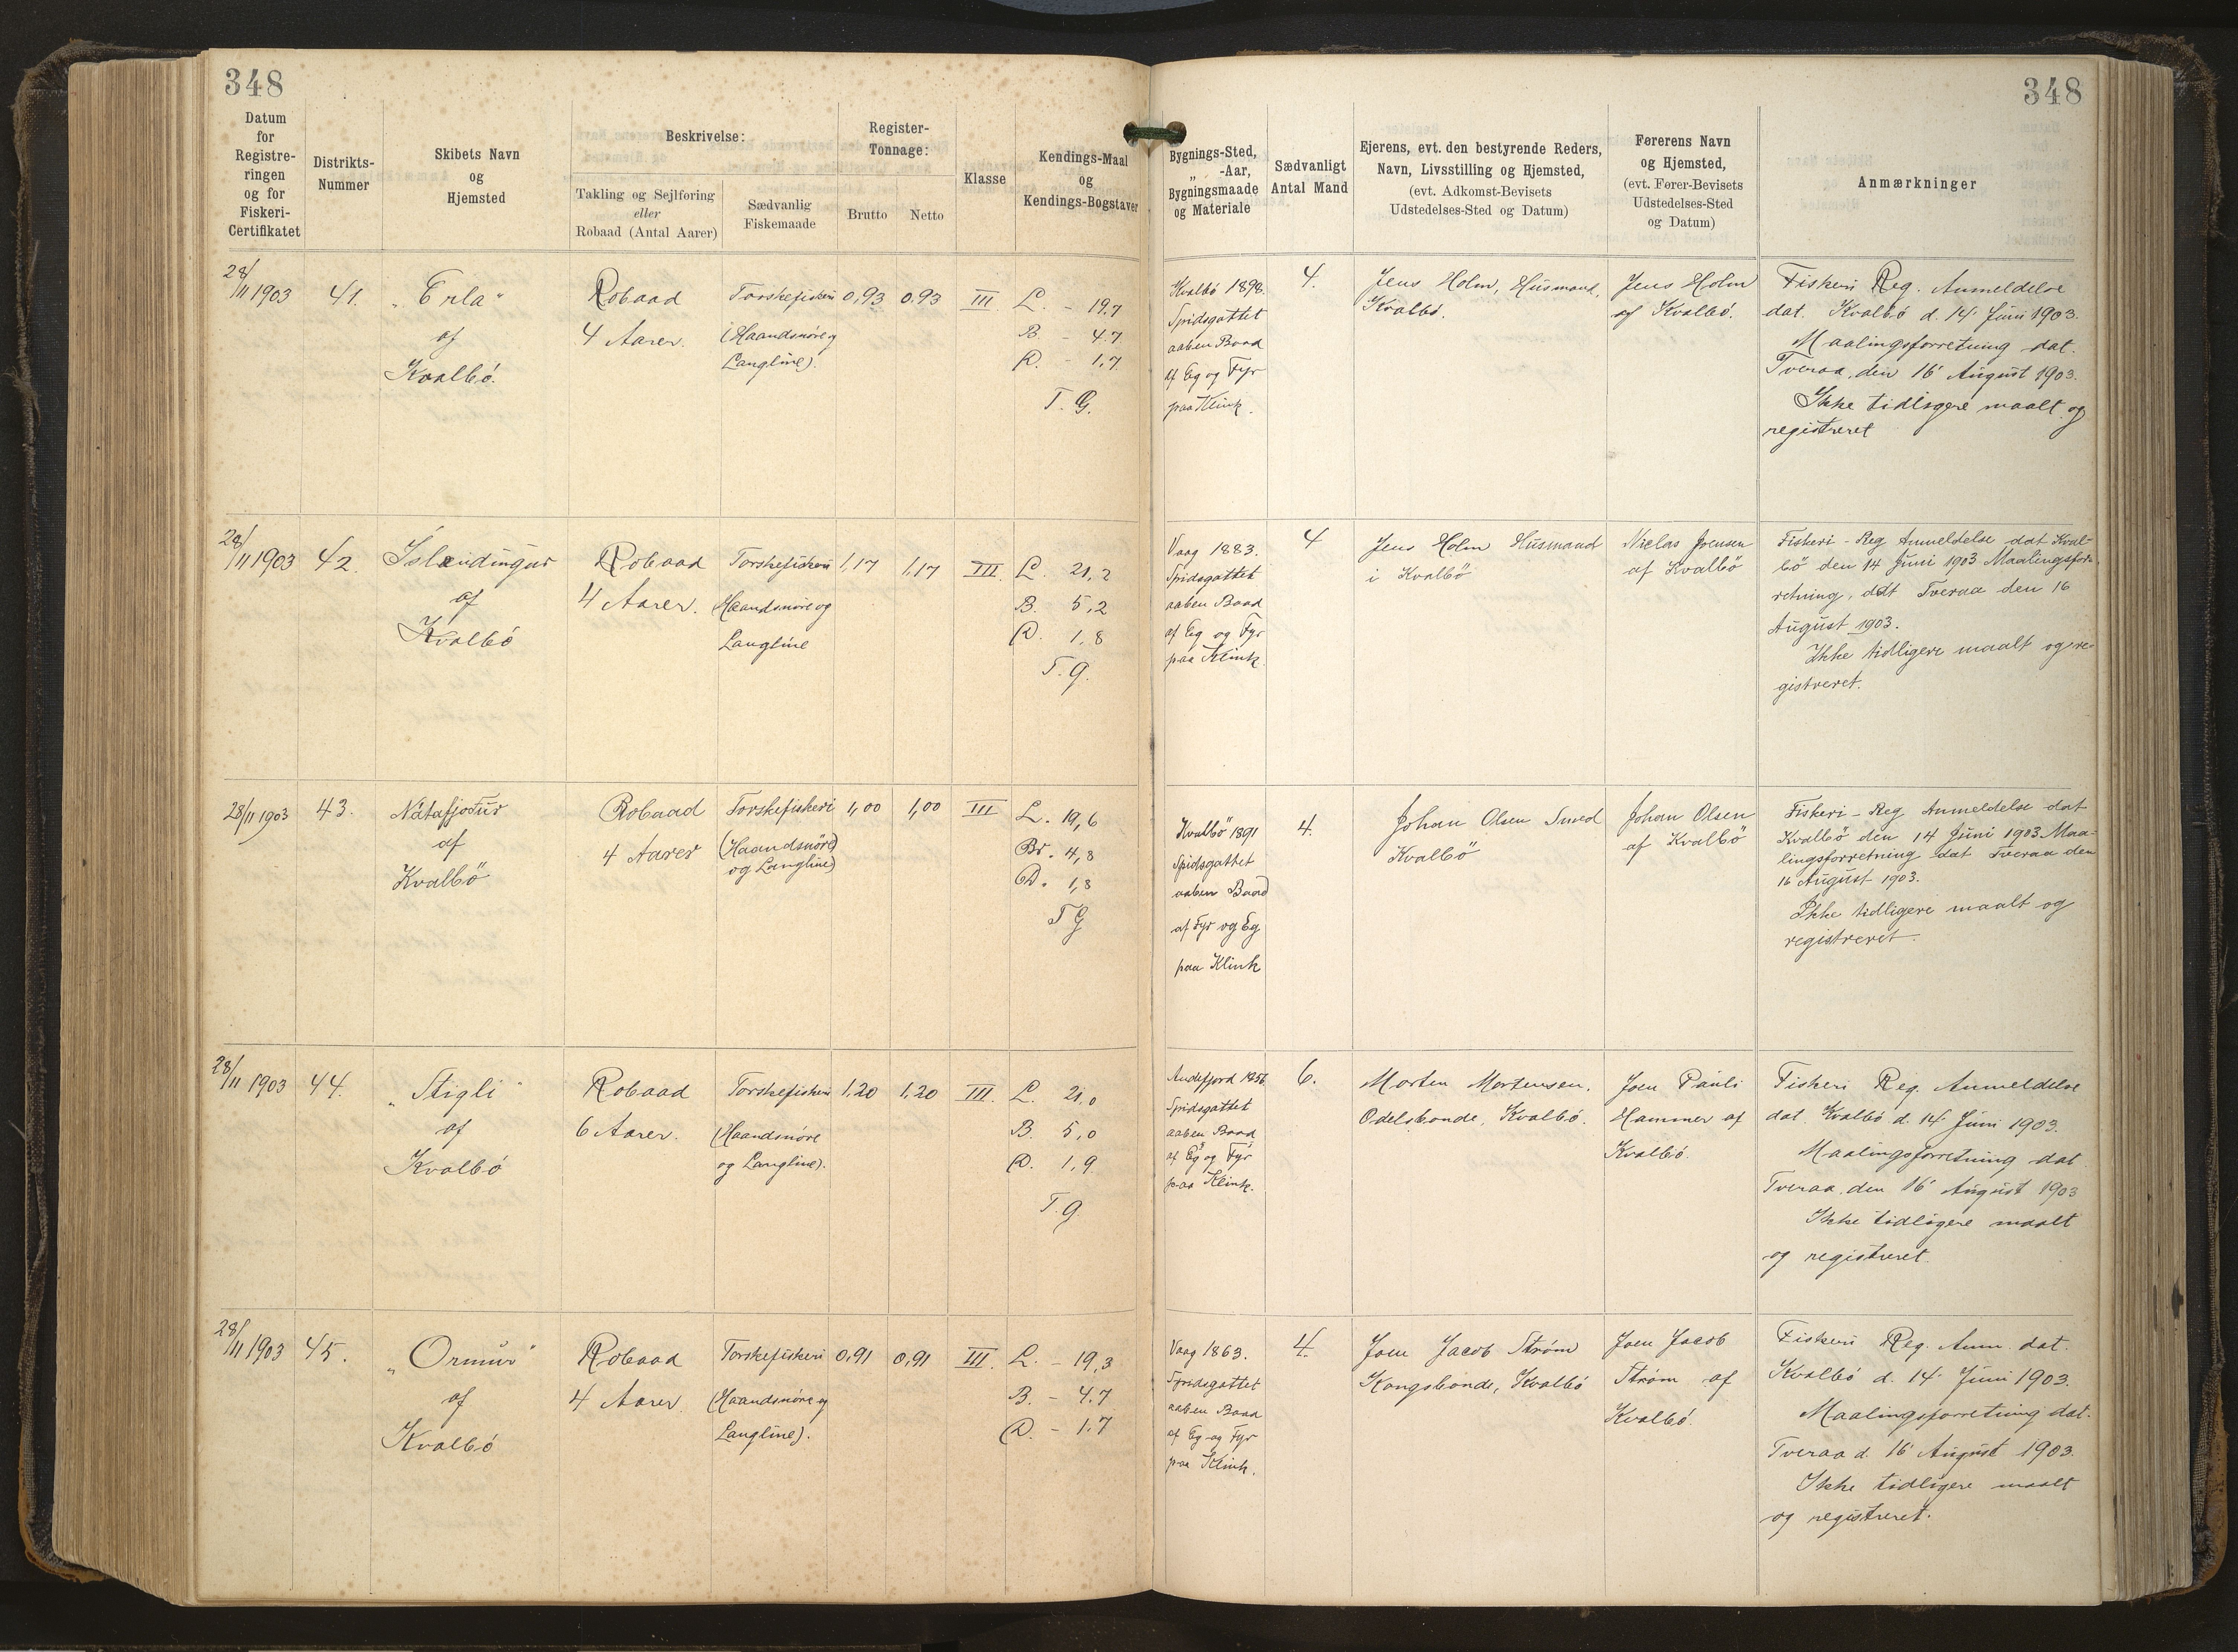 348
348
Datum
for
Registre-
ringen
og for
Fiskeri-
Certifikatet
Distrikts-
Nummer
Skibets Navn
og
Hjemsted
Beskrivelse:
Takling og Sejlføring
eller
Robaad (Antal Aarer)
Sædvanlig
Fiskemaade
Register-
Tonnage:
Brutto
Netto
Klasse
Kendings-Maal
og
Kendings-Bogstaver
Bygnings-Sted,
„ -Aar,
Bygningsmaade
og Materiale
Sædvanligt
Antal Mand
Ejerens, evt. den bestyrende Reders,
Navn, Livsstilling og Hjemsted,
(evt. Adkomst-Bevisets
Udstedelses-Sted og Datum)
Førerens Navn
og Hjemsted,
(evt. Fører-Bevisets
Udstedelses-Sted
og Datum)
Anmærkninger
28/11 1903
41.
„Erla"
af
Kvalbö.
Robaad
4 Aarer.
Torskefiskeri
(Haandsnöre og
Langline).
0,93
0,93
III
L. - 19.7
B. - 4.7
D. - 1.7
T. G.
Kvalbö 1898.
Spidsgattet
aaben Baad
af Eg og Fyr
paa Klink.
4.
Jens Holm, Husmand,
Kvalbö.
Jens Holm
af Kvalbö.
Fiskeri Reg. Anmeldelse
dat. Kvalbö d. 14 Juni 1903.
Maalingsforretning dat.
Tveraa, den 16 August 1903.
Ikke tidligere maalt og
registreret
28/11 1903
42.
Íslendingur
af
Kvalbö
Robaad
4 Aarer.
Torskefiskeri
Haandsnöre og
Langline
1,17
1,17
III.
L. 21,2
B. 5,2
D. 1,8
T. G.
Vaag 1883.
Spidsgattet
aaben Baad
af Eg og Fyr
paa Klink.
4
Jens Holm Husmand
i Kvalbö
Niclas Joensen
af Kvalbö
Fiskeri - Reg Anmeldelse dat Kval-
bö den 14 Juni 1903 Maalingsfor-
retning, dat Tveraa den 16
August 1903.
Ikke tidligere maalt og re-
gistreret.
28/11 1903
43.
Nátafjødur
af
Kvalbö
Robaad
4 Aarer
Torskefiskeri
(Haandsnöre)
og Langline)
1,00
1,00
III
L. 19,6
Br. 4,8
D. 1,8
T G
Kvalbö 1891
Spidsgattet
aaben Baad
af Fyr og Eg
paa Klink
4.
Johan Olsen Smed
Kvalbö
Johan Olsen
af Kvalbö
Fiskeri - Reg Anmeldelse dat
Kvalbö den 14 Juni 1903 Maa-
lingsforretning dat Tveraa den
16 August 1903.
Ikke tidligere maalt og
registreret.
28/11 1903
44.
„Stigli"
af
Kvalbö
Robaad
6 Aarer.
Torskefiskeri
(Haandsnöre
og Langline).
1,20
1,20
III.
L. 21,0
B. 5,0
D. 1,9
T. G.
Andefjord 1856.
Spidsgattet
aaben Baad
af Eg og Fyr
paa Klink.
6.
Morten Mortensen,
Odelsbonde, Kvalbö.
Joen Pauli
Hammer af
Kvalbö.
Fiskeri Reg. Anmeldelse
dat. Kvalbö d. 14 Juni 1903.
Maalingsforretning dat
Tveraa, den 16 August 1903
Ikke tidligere maalt
og registreret.
28/11 1903
45.
„Ormur"
af
Kvalbö
Robaad
4 Aarer
Torskefiskeri
(Haandsnöre og
Langline).
0,91
0,91
III.
L. - 19,3
B. - 4.7
D. - 1.7
Vaag 1863.
Spidsgattet
aaben Baad
af Eg og Fyr
paa Klink.
4.
Joen Jacob Strøm
Kongsbonde, Kvalbö
Joen Jacob
Strøm af
Kvalbö.
Fiskeri Reg. Anm. dat.
Kvalbö d. 14 Juni 1903.
Maalingsforretning dat.
Tveraa d. 16 August 1903.
Ikke tidligere maalt
og registreret.